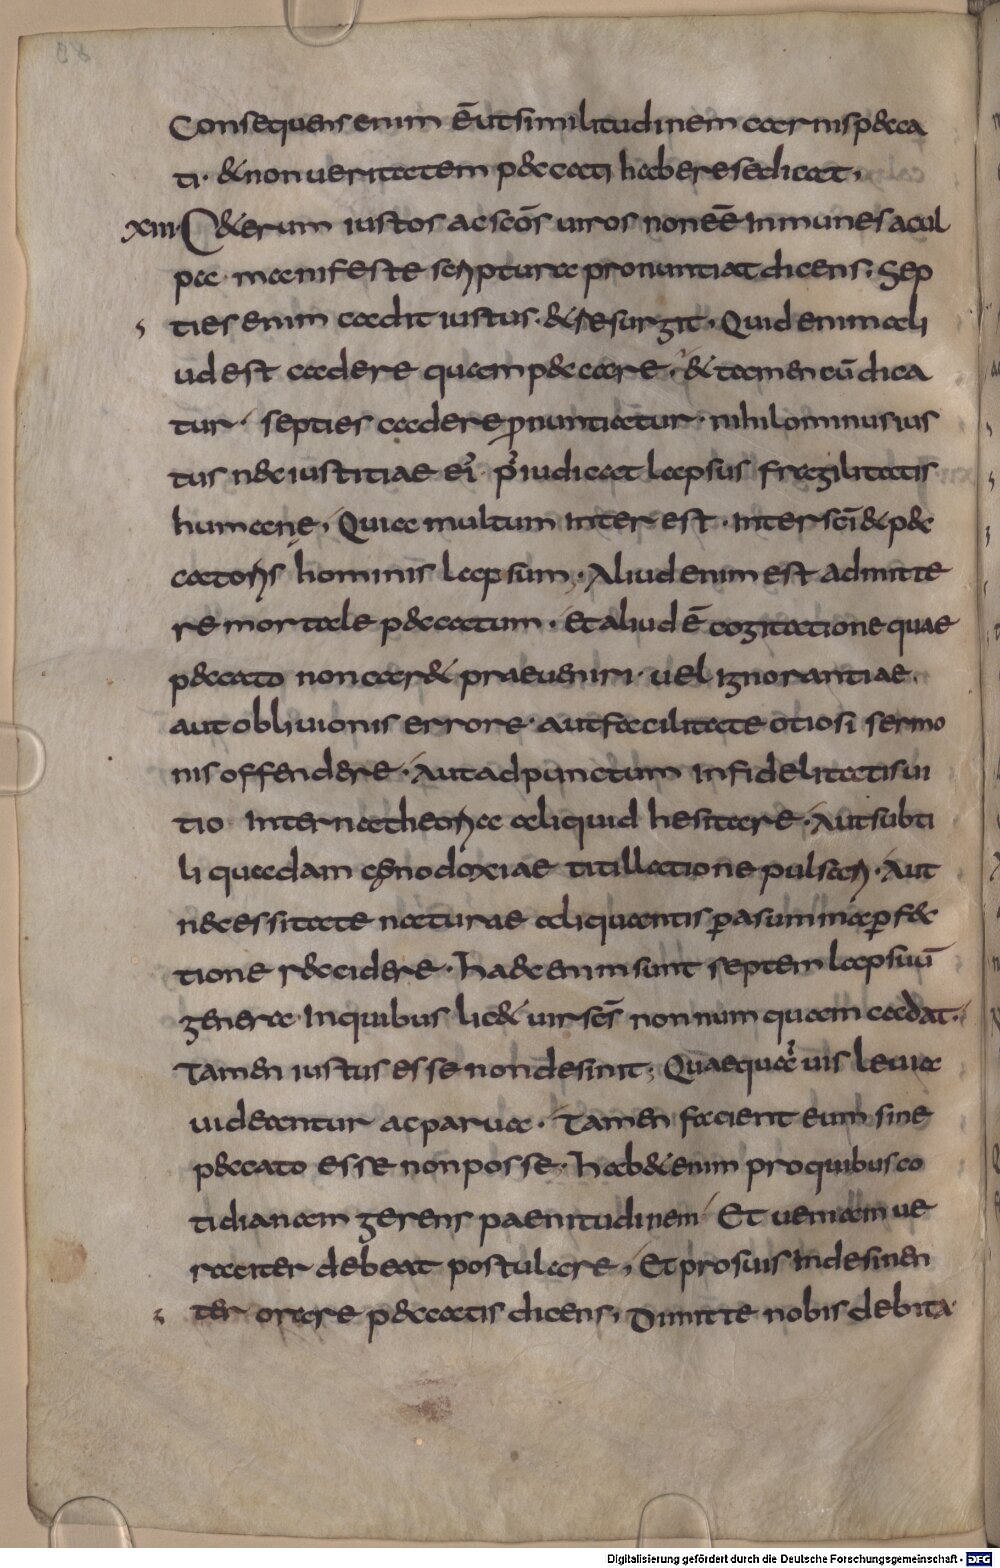 Consequens enim ē ut similitudinem carnis pecca
ti· & non ueritatem peccati habere se dicat·
XIII· Ceterum iustos ac scōs uiros non eē inmunes a cul
pa manifeste scriptura pronuntiat dicens; Sep
ties enim cadit iustus· & resurgit· Quid enim ali
ud est cadere quam peccare· & tamen cū dica
tur· septies cadere pronuntiatur· nihilominus ius
tus nec iustitiae ei' p'iudicat lapsus fragilitatis
humane· Quia multum inter est· inter scī & pec
catoris hominis lapsum· Aliud enim est admitte
re mortale peccatum· Et aliud ē cogitatione quae
peccato non caret praeueniri· uel ignorantiae
aut obliuionis errore· aut facilitate otiosi sermo
nis offendere· Aut ad punctum infidelitatis ui
tio inter na theoria aliquid hesitare· Aut subti
li quadam cenodoxiae titillatione pulsari· Aut
necessitate naturae aliquantisper a summa perfec
tione recidere· Haec enim sunt septem lapsuū
genera in quibus lic& uir scs non num quam cadat·
Tamen iustus esse non desinit; Quae quauis leuia
uideantur ac parua· Tamen faciunt eum sine
peccato esse non posse· Hab& enim pro quibus co
tidianam gerens paenitudinem Et ueniam ue
raciter debeat postulare· Et pro suis indesinen
ter orare peccatis dicens· Dimitte nobis debita
Digitalisierung gefördert durch die Deutsche Forschungsgemeinschaft - DFG